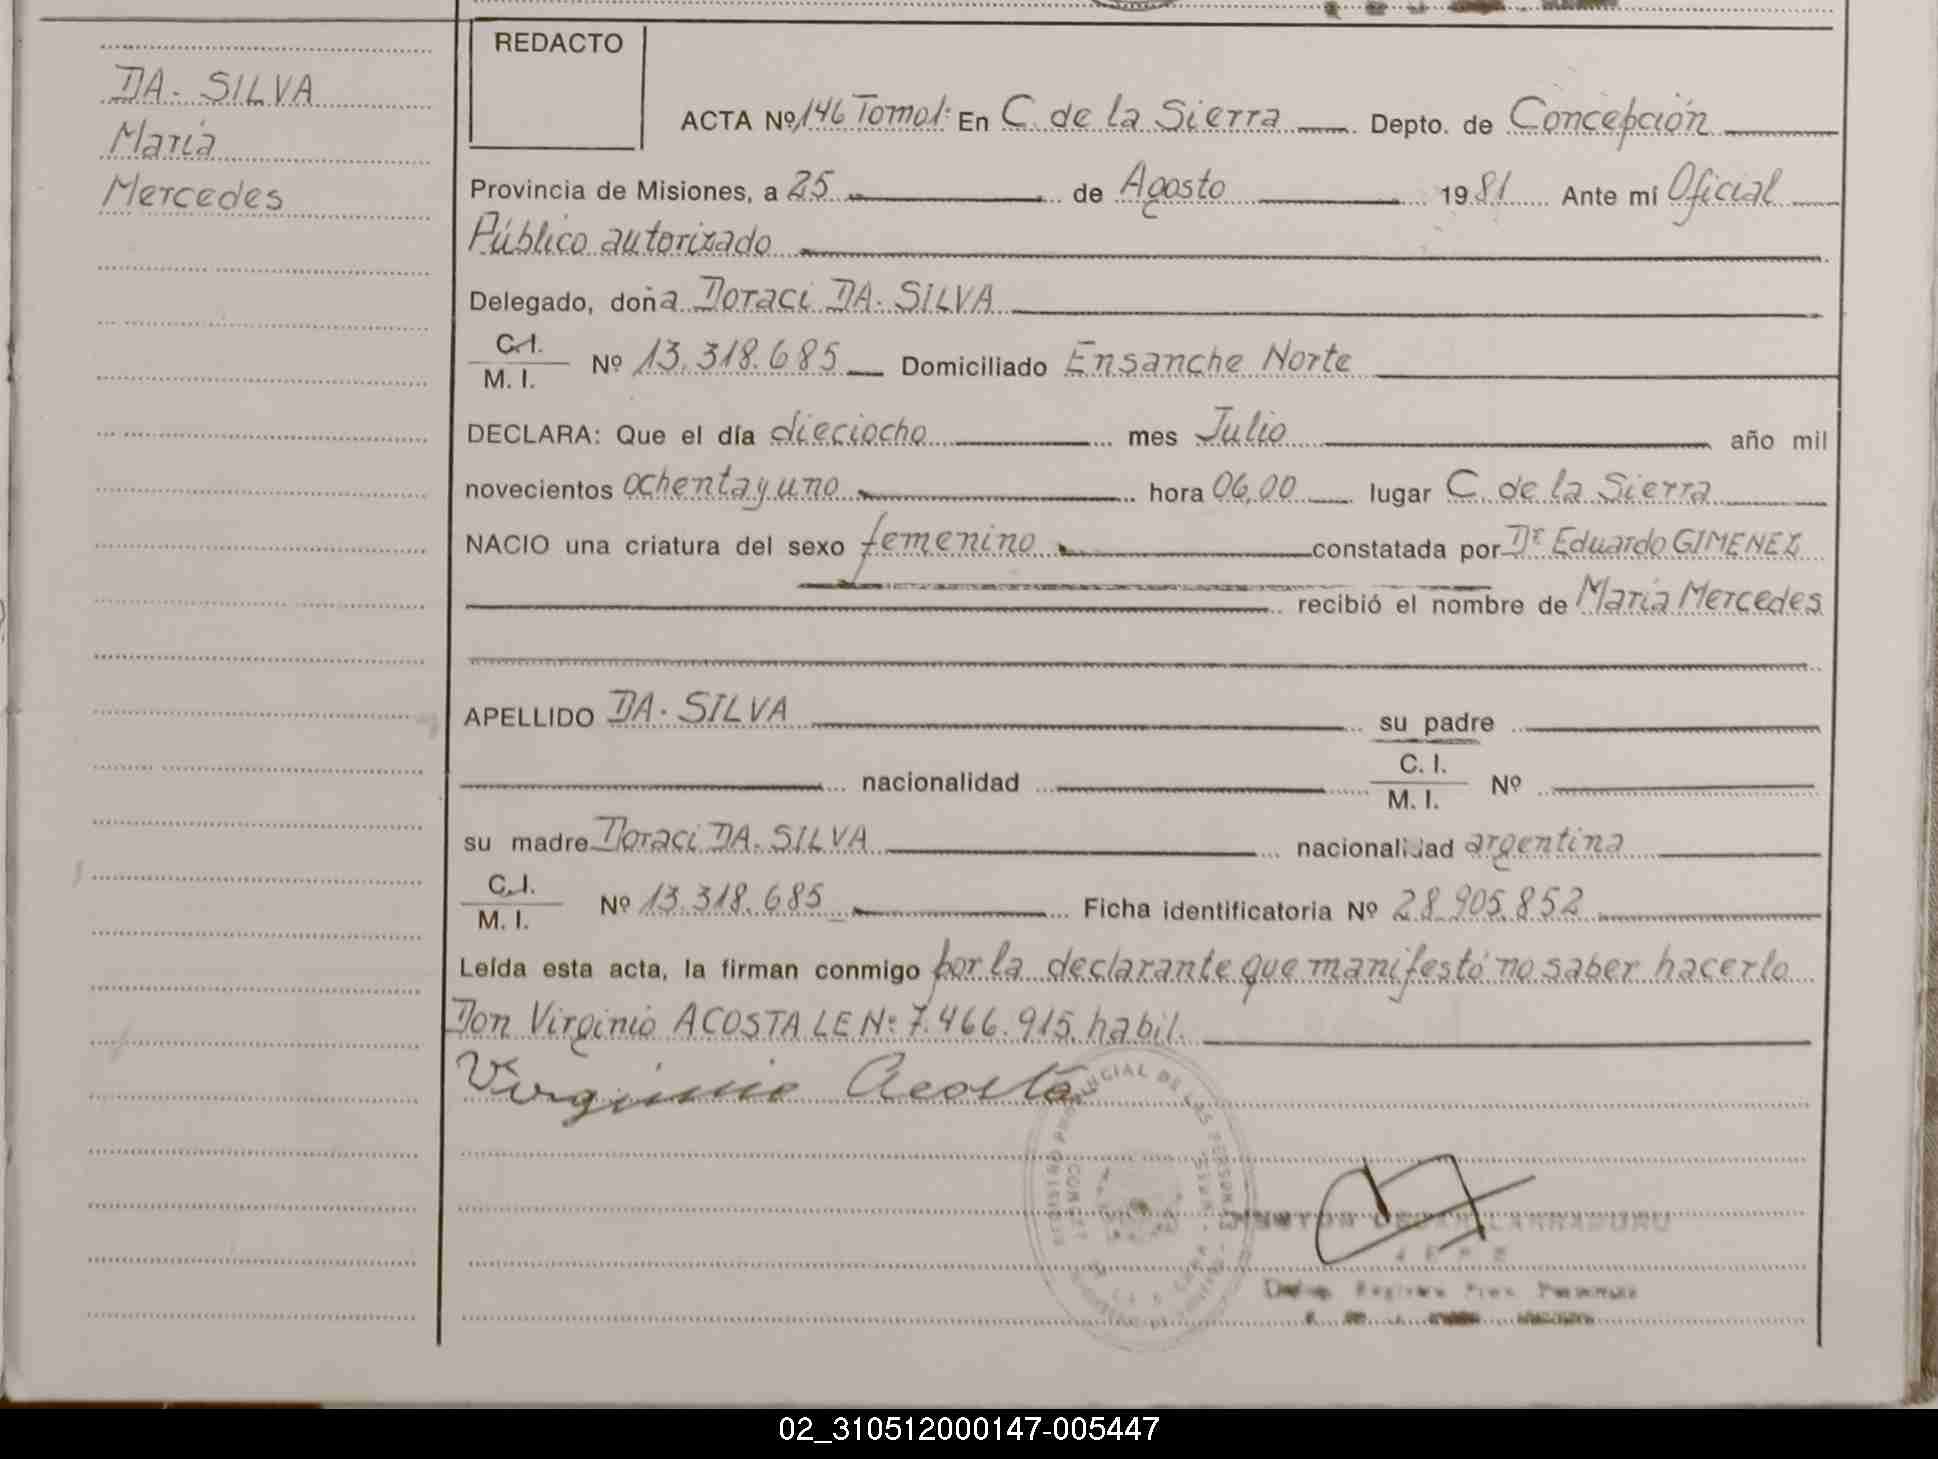 DA. SILVA
María
Mercedes
REDACTO
ACTA Nº 146 Tomo 1: En C. de la Sierra Depto. de Concepción
Provincia de Misiones, a 25 de Agosto 1981 Ante mí Oficial
Público autorizado
Delegado, doña Doraci DA. SILVA
C.I.
M. I. Nº 13.318.685 Domiciliado Ensanche Norte
DECLARA: Que el día dieciocho mes Julio año mil
novecientos ochenta y uno hora 06,00 lugar C. de la Sierra
NACIO una criatura del sexo femenino constatada por Dr Eduardo GIMENEZ
recibió el nombre de María Mercedes
APELLIDO DA. SILVA su padre
nacionalidad C. I.
M. I. Nº
su madre Doraci DA. SILVA nacionalidad argentina
C.I.
M. I. Nº 13.318.685 Ficha identificatoria Nº 28.905.852
Leída esta acta, la firman conmigo por la declarante que manifestó no saber hacerlo
Don Virginio ACOSTA LE Nº: 7.466.915, habil.
Virginio Acosta
REGISTRO PROVINCIAL DE LAS PERSONAS
JEFE
02_310512000147-005447